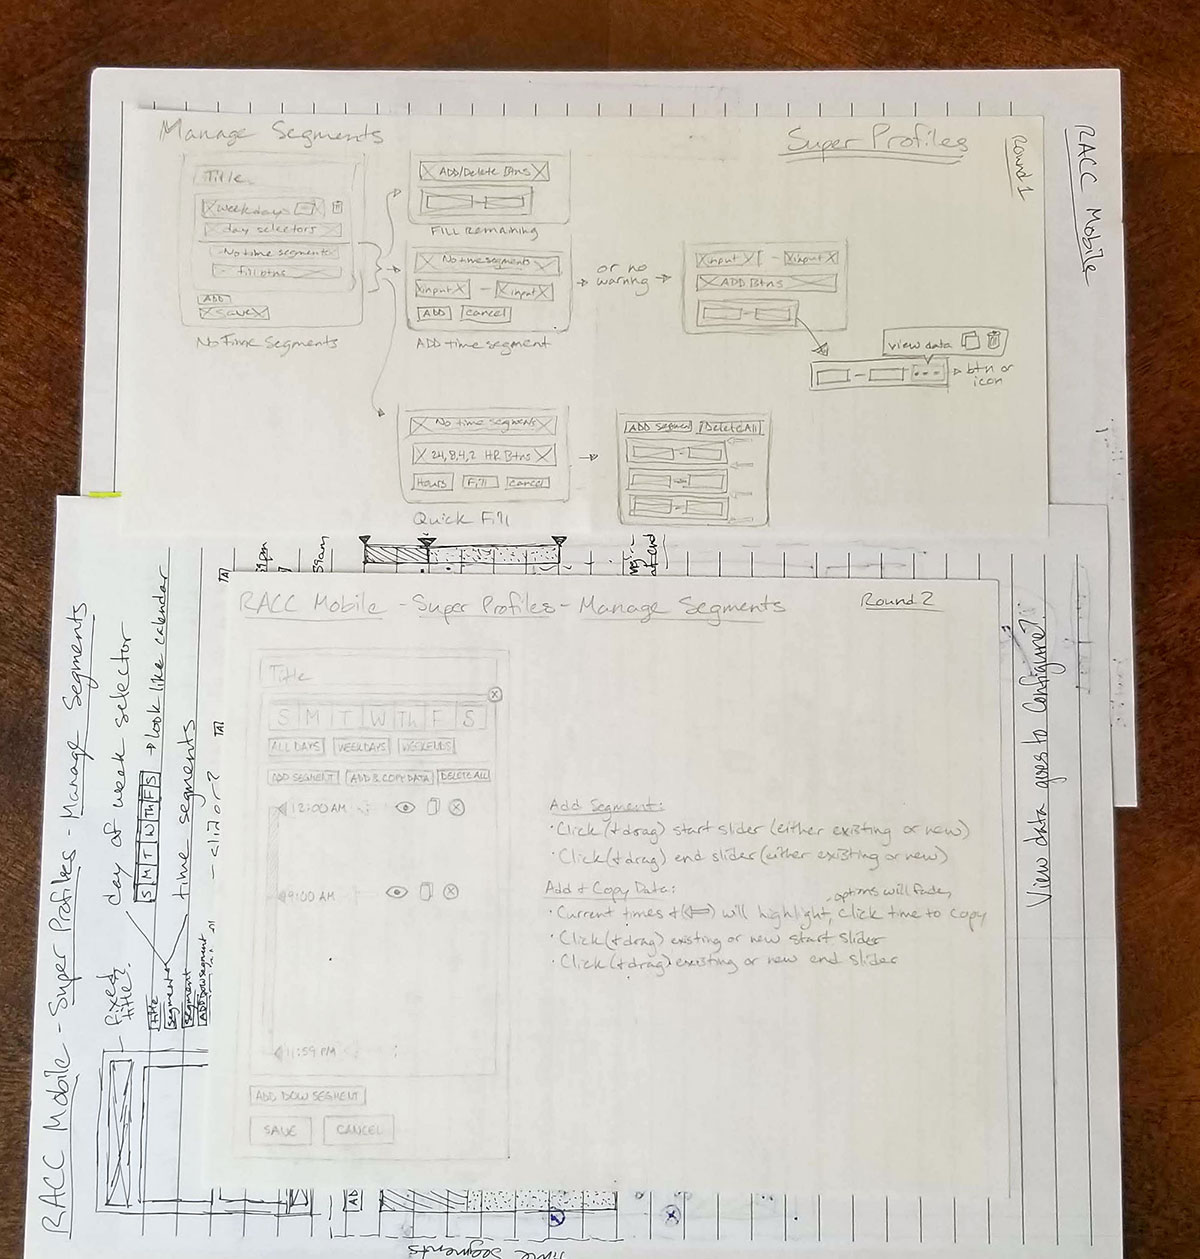 Manage Segments
Super Profiles
Round 1
RACC Mobile
Title
Weekdays
day selectors
No time segments
fill btns
ADD
SAVE
No Time Segments
ADD/Delete Btns
Fill Remaining
No time segments
input - input
ADD Cancel
ADD time segment
or no
warning
input - input
ADD Btns
view data
btn or
icon
No time segments
24,8,4,2 HR Btns
Hours Fill Cancel
Quick Fill
ADD Segment Delete All
RACC Mobile - Super Profiles - Manage Segments
Round 2
Title
S M T W Th F S
ALL DAYS WEEKDAYS WEEKENDS
ADD SEGMENT ADD & COPY DATA DELETE ALL
12:00 AM
9:00 AM
11:59 PM
ADD DOW SEGMENT
SAVE CANCEL
Add Segment:
• Click (+ drag) start slider (either existing or new)
• Click (+ drag) end slider (either existing or new)
Add + Copy Data:
- options will fade,
• Current times + (⇐) will highlight, click time to copy
• Click (+ drag) existing or new start slider
• Click (+ drag) existing or new end slider
RACC Mobile - Super Profiles - Manage Segments
fixed
title?
day of week selector
S M T W Th F S → look like calendar
time segments
- slider?
title
segment
segment
ADD DOW segment
59am
at end
View data goes to Configure?
AD
Time Segments